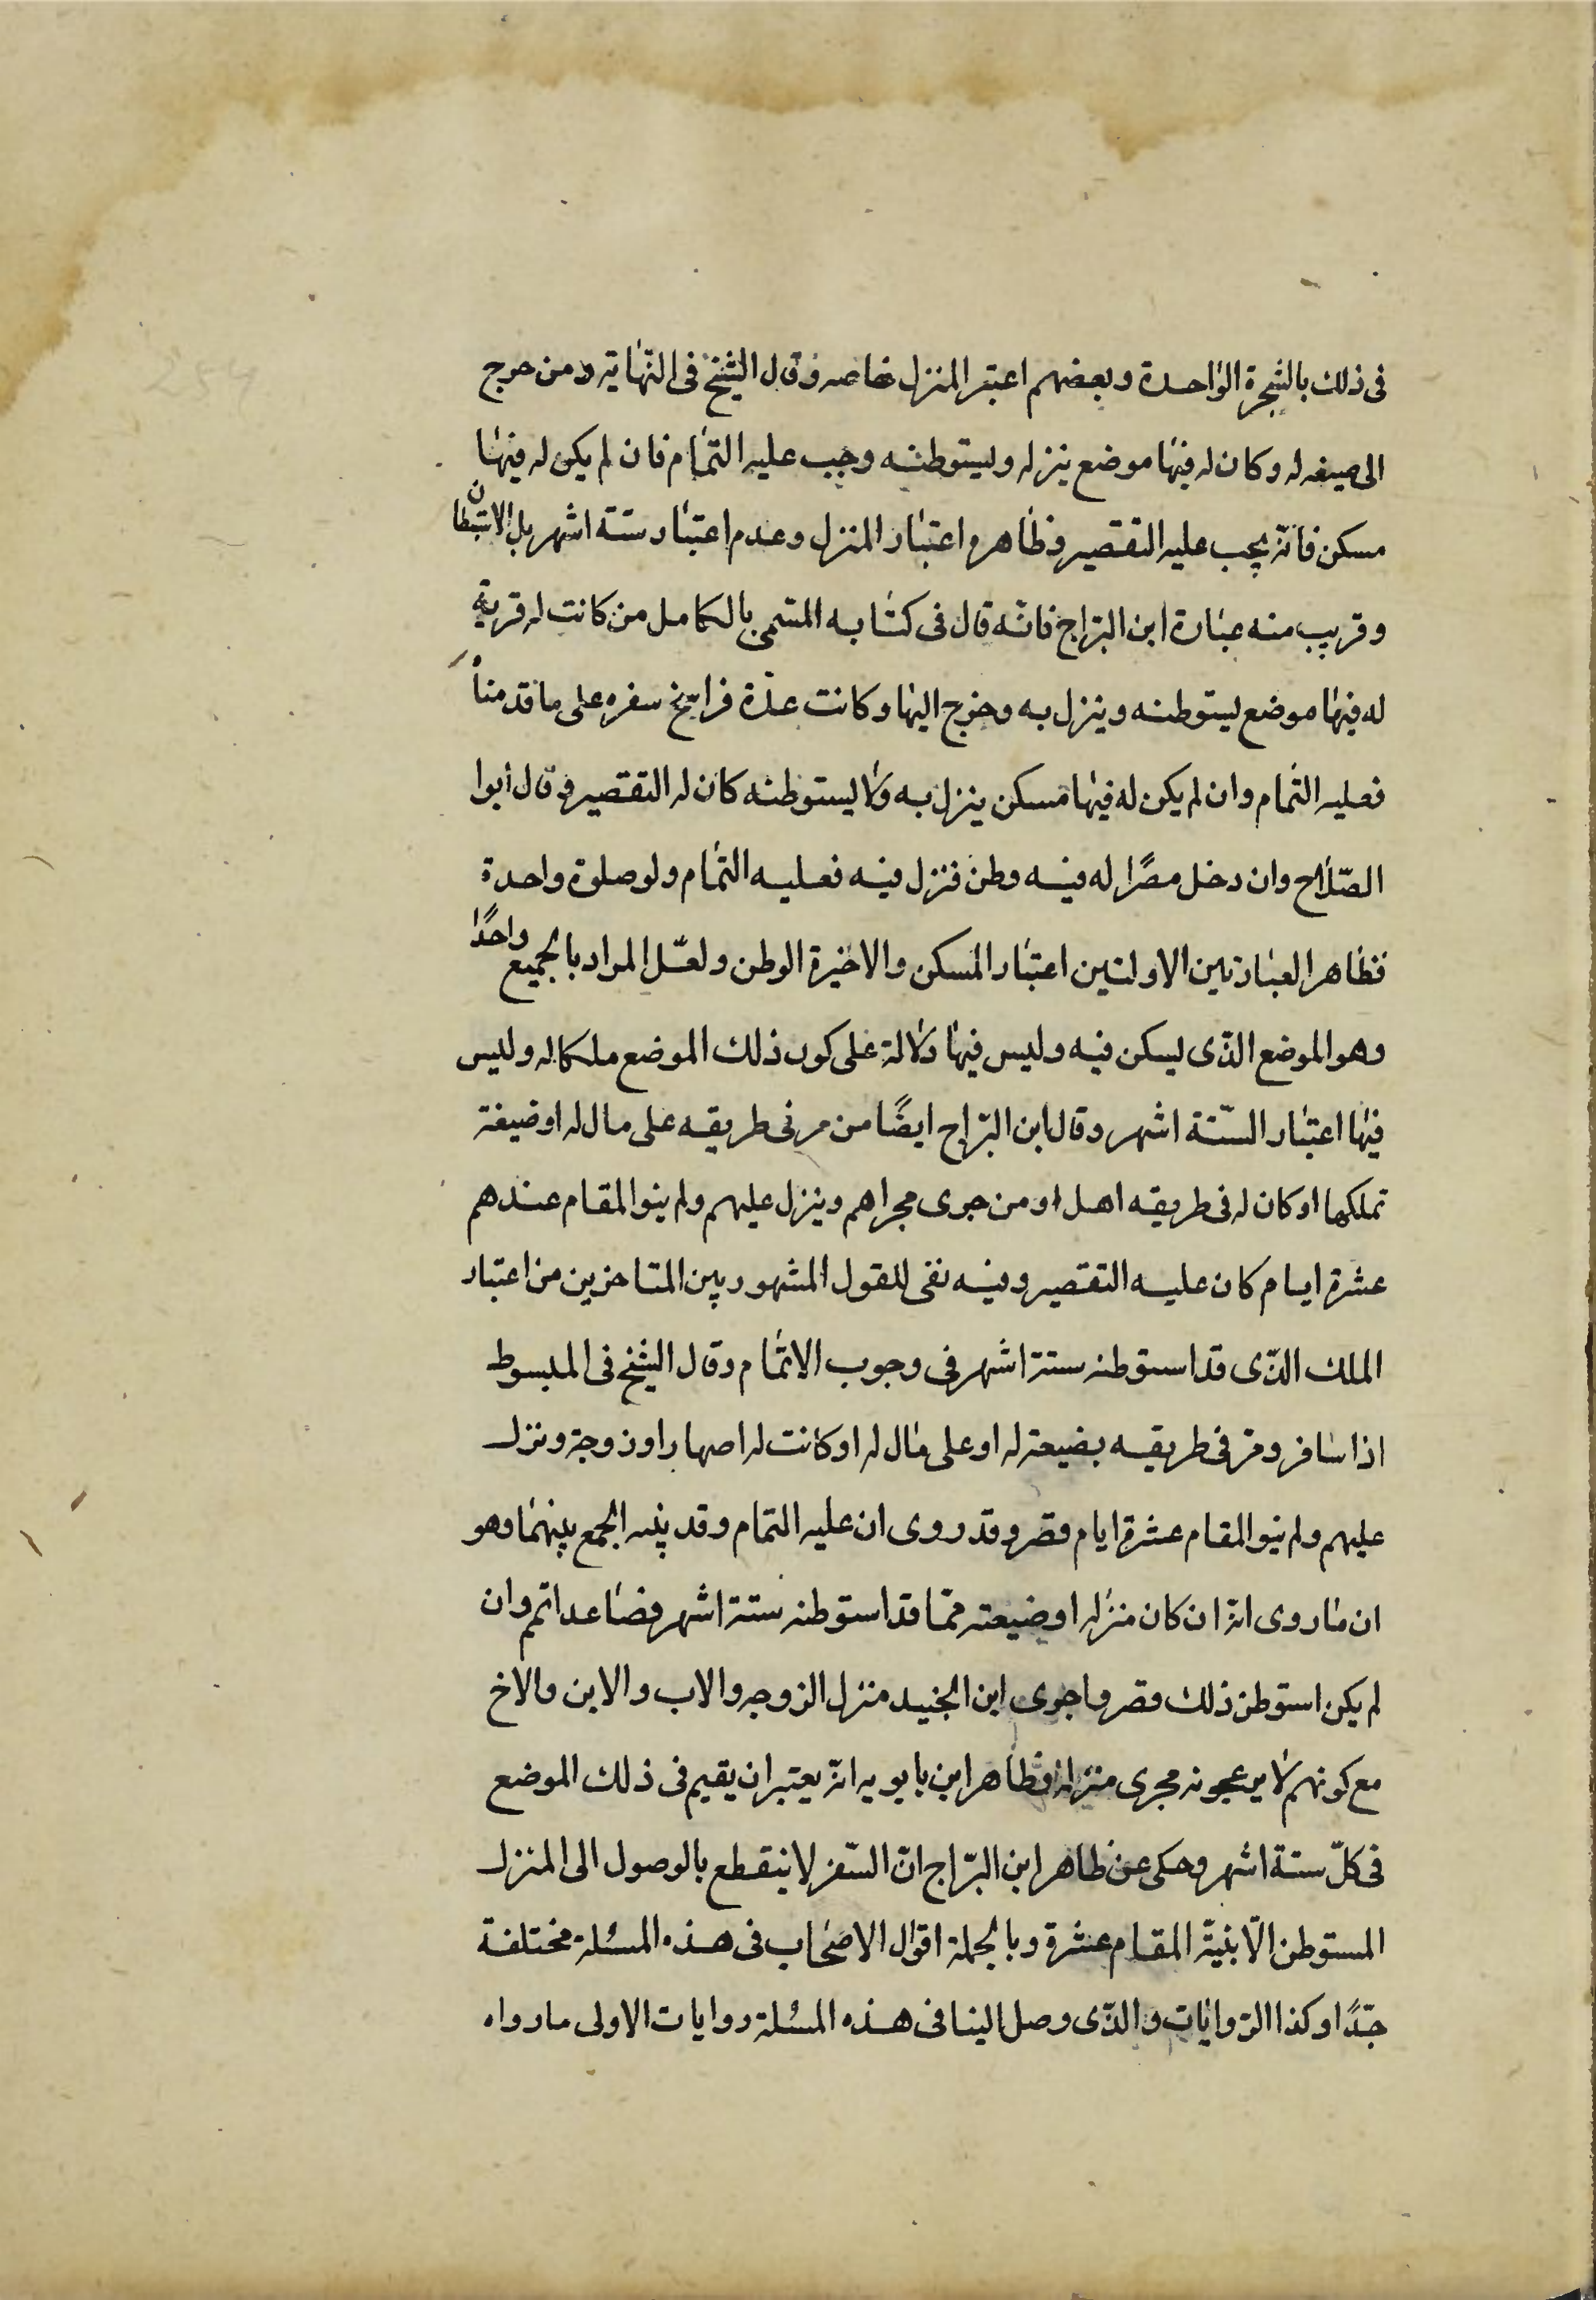 فى ذلك بالشجرة الواحدة وبعضهم اعتبر المنزل خاصه وقال الشيخ فى النّهاية ومن خرج
الى ضيعه له وكان له فيها موضع ينزله وليستوطنه وجب عليه التمام فان لم يكن له فيها
مسكن فانّه يجب عليه التقصير وظاهره اعتبار المنزل وعدم اعتبار ستة اشهر بل الاستيطان
وقريب منه عبارة ابن البرّاج فانّه قال فى كتابه المسّمى بالكامل من كانت له قرية
له فيها موضع يستوطنه وينزل به وخرج اليها وكانت عدّة فراسخ سفره على ما قدمناه
فعليه التمام وان لم يكن له فيها مسكن ينزل به ولا يستوطنه كان له التقصير وقال ابوا
الصّلاح وان دخل مصرًا له فيه وطن فنزل فيه فعليه التمام ولو صلوة واحدة
فظاهر العبارتين الاولتين اعتبار المسكن والاخيرة الوطن ولعّل المراد بالجميع واحدًا
وهو الموضع الذّى يسكن فيه وليس فيها دلالة على كون ذلك الموضع ملكا له وليس
فيها اعتبار السّتة اشهر وقال ابن البرّاج ايضًا من مر فى طريقه على مال له او ضيعة
تملكها او كان له فى طريقه اهل او من جرى مجراهم وينزل عليهم ولم ينو المقام عندهم
عشرة ايام كان عليه التقصير وفيه نفى للقول المشهور بين المتاخرين من اعتبار
الملك الذّى قد استوطنه ستة اشهر فى وجوب الاتمام وقال الشيخ فى المبسوط
اذا سافر ومرّ فى طريقه بضيعة له او على مال له او كانت له اصهار او زوجة ونزل
عليهم ولم ينو المقام عشرة ايام قصر وقد روى ان عليه التمام وقد بينه الجمع بينهما وهو
ان ما روى انه ان كان منزله او ضيعته ممّا قد استوطنه ستة اشهر فصاعدا تم وان
لم يكن استوطن ذلك قصر واجرى ابن الجنيد منزل الزوجه والاب والابن والاخ
مع كونهم لا يزعجونه مجرى منزله وظاهر ابن بابويه انه يعتبر ان يقيم فى ذلك الموضع
فى كلّ ستة اشهر وحكى عن ظاهر ابن البرّاج انّ السّفر لا ينقطع بالوصول الى المنزل
المستوطن الّا بنيّة المقام عشرة وبالجملة اقوال الاصحاب فى هذه المسئلة مختلفة
جدًّا وكذا الرّوايات والذّى وصل الينا فى هذه المسئلة روايات الاولى ما رواه